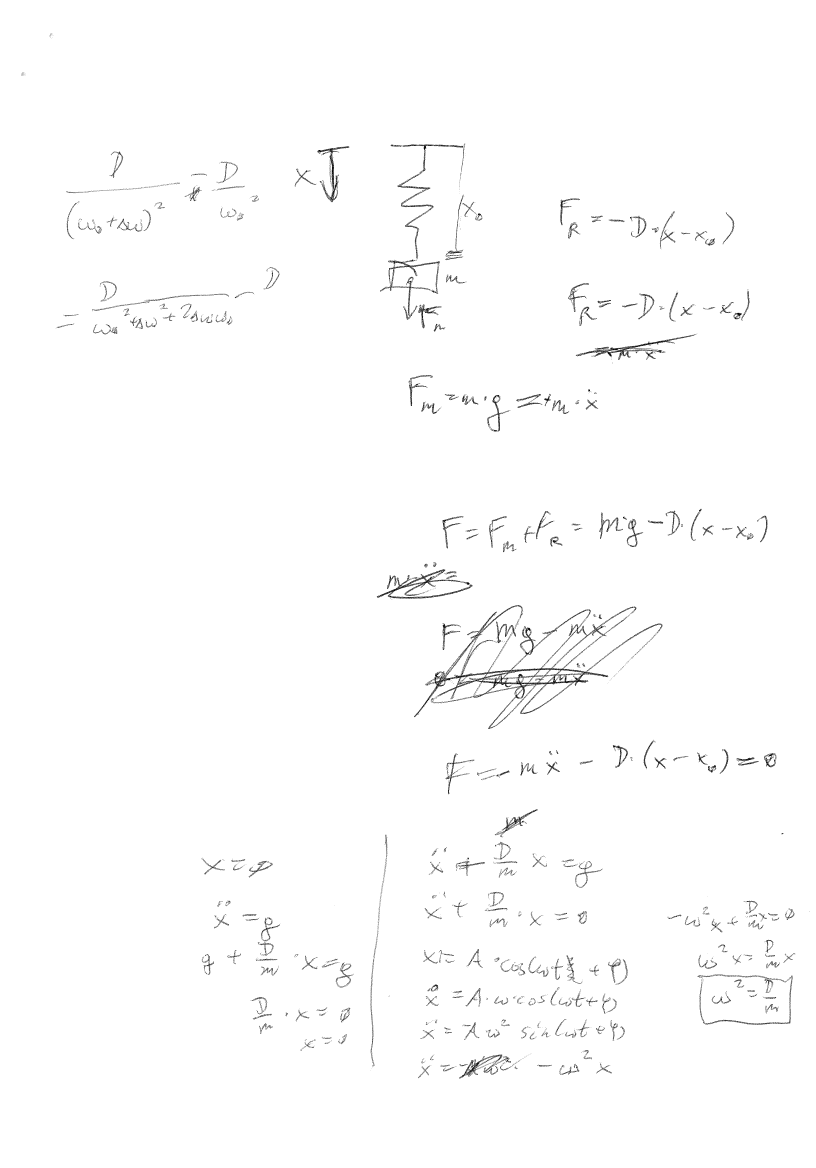 D/(ω₀+Δω)² = D/ω₀²
= D/(ω₀²+Δω²+2Δωω₀) - D
x
x₀
m
F_R = -D·(x-x₀)
F_R = -D·(x-x₀)
F_m = m·g = +m·ẍ
F = F_m + F_R = m·g - D·(x-x₀)
m·ẍ =
F = mg - mẍ
0 = mg - mẍ
F = -mẍ - D·(x-x₀) = 0
m
x = 0
ẍ = g
g + D/m · x = g
D/m · x = 0
x = 0
ẍ + D/m x = g
ẍ + D/m · x = 0
x = A · cos(ωt + φ)
ẋ = A·ω·cos(ωt+φ)
ẍ = -Aω² sin(ωt+φ)
ẍ = -ω² x
-ω²x + D/m x = 0
ω²x = D/m x
ω² = D/m